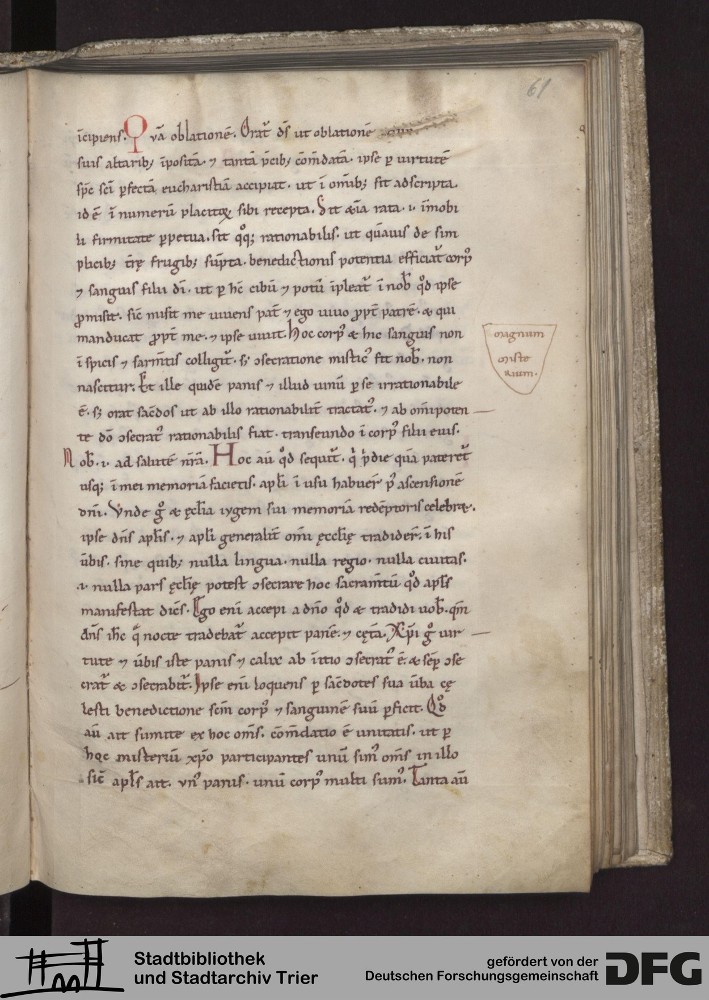 61
īcipiens. Qvā oblationē. Orat᷒ dſ ut oblationē
suis altarib; īposita. ⁊ tantā p̄cib; cōm̄data. ipse ꝑ uirtutē
sp̄c sc̄i ꝑfectā eucharistiā accipiat. ut ī om̄ib; sit adscripta.
id ē ī numerū placitoꝝ sibi recepta. Sit &īa rata .i. īmobi
li firmitate ꝑpetua. sit qͦq; rationabilis. ut quāuis de sim
plicib; t̄rę frugib; sūpta. benedictionis potentia efficiat᷒ corp᷒
⁊ sanguis filii dī. ut ꝑ hē cibū ⁊ potū īpleat᷒ ī nob̄ qd̄ ipse
ꝓmisit. sic̄ misit me uiuens pat᷒ ⁊ ego uiuo ꝓpt᷒ patrē. & qui
manducat ꝓpt᷒ me. ⁊ ipse uiuit. Hoc corp᷒ & hic sanguis non
ī spicis ⁊ sarm̄tis colligit᷒. s; ↄsecratione mistic᷒ fit nob̄. non
nascitur. Et ille quidē panis ⁊ illud uinū ꝑ se irrationabile
ē. s; orat sac̄dos ut ab illo rationabilit᷒ tractat᷒. ⁊ ab om̄ipoten
te dō ↄsecrat᷒ rationabilis fiat. transeundo ī corp᷒ filii eius.
Nob̄ .i. ad salutē nrā. Hoc aū qd̄ sequit᷒. q̄ p̄die quā pateret᷒
usq; ī mei memoriā facietis. apl̄i ī usu habuer᷒ p᷒ ascensionē
dn̄i. Vnde g͛ & ęcl̄ia iugem sui memoriā redēptoris celebr&.
ipse dn̄s apl̄is. ⁊ apl̄i generalit᷒ om̄i ęccl̄ię tradider᷒. ī his
ūbis. sine quib; nulla lingua. nulla regio. nulla ciuitas.
.i. nulla pars ęcl̄ię potest ↄsecrare hoc sacram̄tū qd̄ apl̄s
manifestat dicēs. Ego enī accepi a dn̄o qd̄ & tradidi uob̄. qm̄
dn̄s ih̄c ī q̄ nocte tradebat᷒ accepit panē. ⁊ cęt̄a. Xp̄i g͛ uir
tute ⁊ ūbis iste panis ⁊ calix ab īitio ↄsecrat᷒ ē. & sēp ↄse
crat᷒ & ↄsecrabit᷒. Ipse enī loquens ꝑ sac̄dotes sua ūba cę
lesti benedictione scm̄ corp᷒ ⁊ sanguinē suū ꝑficit. Qd̄
aū ait sumite ex hoc om̄s. cōm̄datio ē unitatis. ut ꝑ
hoc misteriū xp̄o participantes unū sim᷒ om̄s in illo
sic̄ apl̄s ait. vn᷒ panis. unū corp᷒ multi sum᷒. Tanta aū
magnum
miste
rium.
Stadtbibliothek
und Stadtarchiv Trier
gefördert von der
Deutschen Forschungsgemeinschaft
DFG